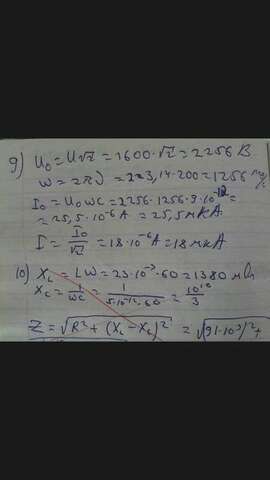 9) U₀ = U√2 = 1600·√2 = 2256 В
ω = 2πν = 2·3,14·200 = 1256
I₀ = U₀ωC = 2256·1256·9·10⁻¹² =
= 25,5·10⁻⁶ А = 25,5 мкА
I = I₀/√2 = 18·10⁻⁶ А = 18 мкА
10) X_L = Lω = 23·10⁻³·60 = 1380
X_C = 1/ωC = 1/5·10⁻¹²·60 = 10¹⁰/3
Z = √R² + (X_L − X_C)² = √(91·10³)² +